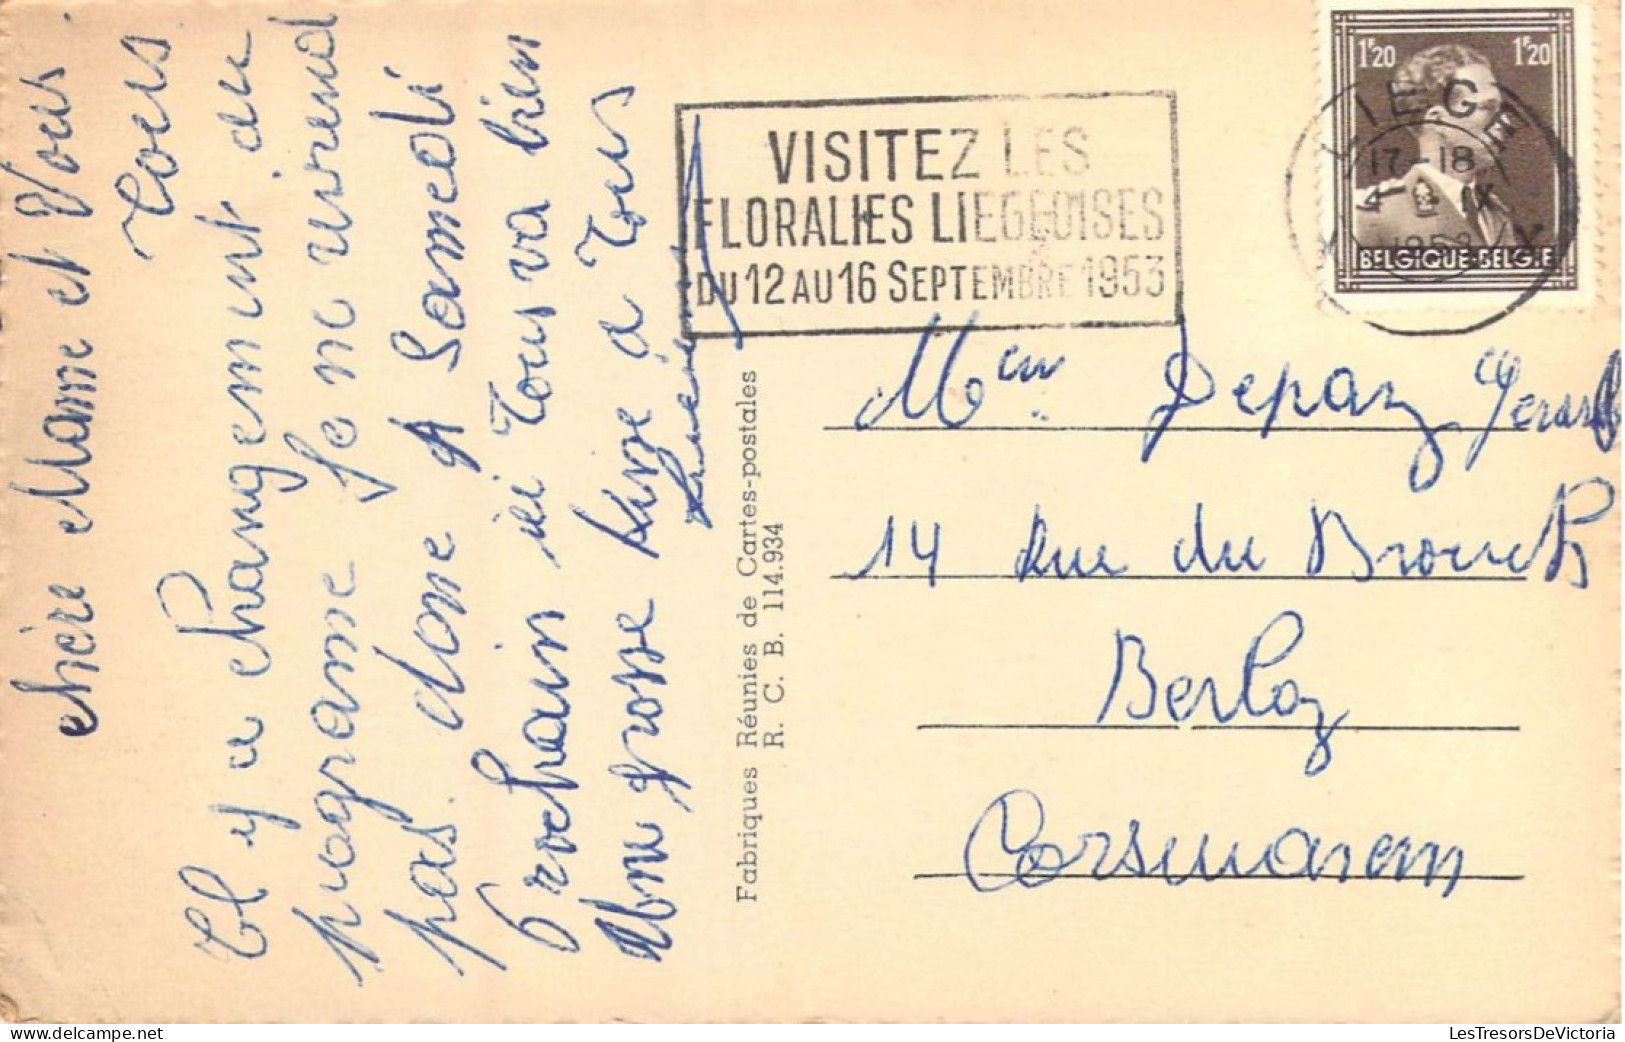 chère Mame et Vous
Tous
Il y a Changement au
programe Je ne viend
pas. donc A Samedi
Prochain ici tous va bien
Une grosse bise a tous
VISITEZ LES
FLORALIES LIEGEOISES
DU 12 AU 16 SEPTEMBRE 1953
1F20 1F20
LIEGE
17-18
4 IX
1953
BELGIQUE-BELGIE
Fabriques Réunies de Cartes-postales
R. C. B. 114.934
Depaz Gerard
14 Rue du Brouck
Berloz
Corswarem
delcampe.net
LesTresorsDeVictoria